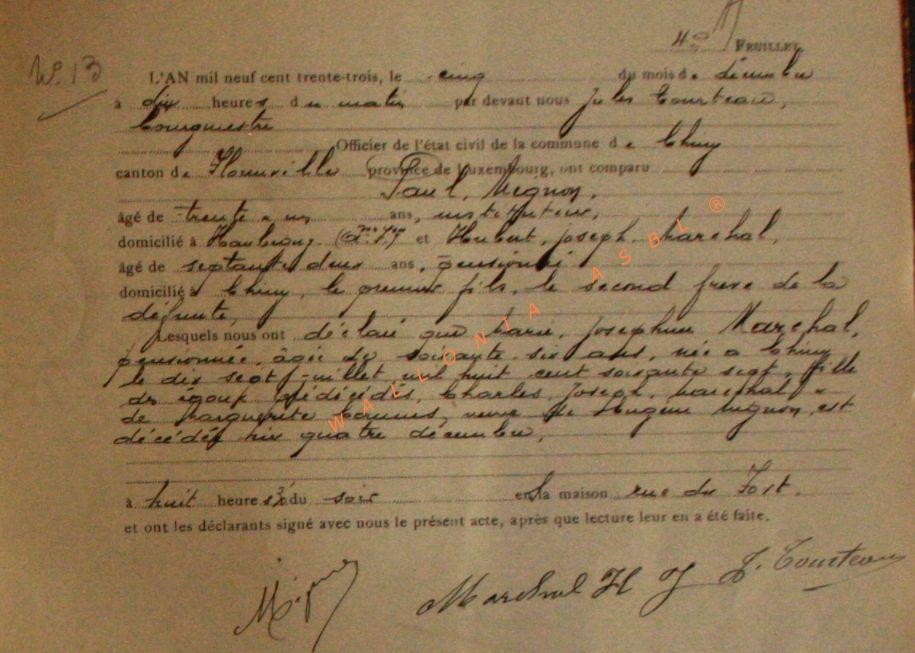 48 FEUILLET.
No. 13
L'AN mil neuf cent trente-trois, le cinq du mois de décembre
à dix heures du matin par devant nous Jules Tourteau,
bourgmestre
Officier de l'état civil de la commune de Chiny
canton de Florenville province de Luxembourg, ont comparu
Paul, Mignon,
âgé de trente & un ans, instituteur,
domicilié à et Hubert, Joseph, Marchal,
âgé de septante deux ans, pensionné
domicilié à Chiny, le premier fils, le second frère de la
défunte,
Lesquels nous ont déclaré que Marie, Joséphine Marchal,
pensionnée, âgée de soixante six ans, née à Chiny
le dix sept juillet mil huit cent soixante sept, fille
des époux Charles, Joseph, Marchal &
de Marguerite veuve de Eugène Mignon, est
décédée hier quatre décembre,
à huit heures du soir en la maison rue du Fort.
et ont les déclarants signé avec nous le présent acte, après que lecture leur en a été faite.
Mignon
Marchal H J J. Tourteau
WALLONIA ASBL ®